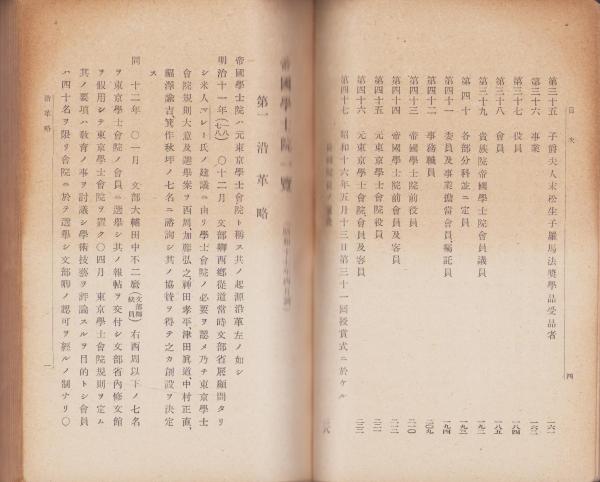 目次
四
第三十五 子爵夫人末松生子羅馬法奬學品受品者 一六一
第三十六 事業 一六二
第三十七 役員 一八四
第三十八 會員 一八五
第三十九 貴族院帝國學士院會員議員 一九二
第四十 各部分科並ニ定員 一九三
第四十一 委員及事業擔當會員、囑託員 一九四
第四十二 事務職員 二〇九
第四十三 帝國學士院前役員 二一〇
第四十四 帝國學士院前會員及客員
第四十五 元東京學士會院役員
第四十六 元東京學士會院會員及客員
第四十七 昭和十六年五月十三日第三十一回授賞式ニ於ケル
帝國學士院一覽
第一 沿革略
帝國學士院ハ元東京學士會院ト稱ス其ノ起源沿革左ノ如シ
明治十一年(一八七八)〇十二月 文部卿西鄕從道當時文部省展顧問タリ
シ米人マレー氏ノ建議ニ由リ學士會院ノ必要ヲ認メ乃チ東京學士
會院規則大意及選擧案ヲ西周、加藤弘之、神田孝平、津田眞道、中村正直、
福澤諭吉、箕作秋坪ノ七名ニ諮詢シ其ノ協贊ヲ得テ之カ創設ヲ決定
ス
同 十二年 〇一月 文部大輔田中不二麿 右西周以下ノ七名
ヲ東京學士會院ノ會員ニ選擧シ其ノ報帖ヲ交付シ文部省內修文館
ヲ假用シテ東京學士會院ヲ置ク〇四月 東京學士會院規則ヲ定ム
其ノ要項ハ敎育ノ事ヲ討議シ學術技藝ヲ評論スルヲ目的トシ會員
ハ四十名ヲ限リ會院ニ於テ選擧シ文部卿ノ認可ヲ經ルノ制ナリ〇
沿革略
一